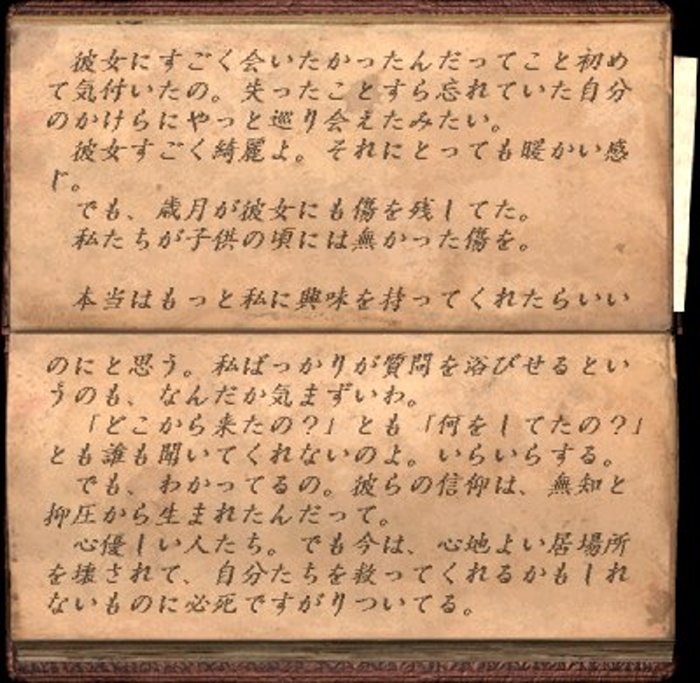 彼女にすごく会いたかったんだってこと初め
て気付いたの。失ったことすら忘れていた自分
のかけらにやっと巡り会えたみたい。
彼女すごく綺麗よ。それにとっても暖かい感
じ。
でも、歳月が彼女にも傷を残してた。
私たちが子供の頃には無かった傷を。
本当はもっと私に興味を持ってくれたらいい
のにと思う。私ばっかりが質問を浴びせるとい
うのも、なんだか気まずいわ。
「どこから来たの？」とも「何をしてたの？」
とも誰も聞いてくれないのよ。いらいらする。
でも、わかってるの。彼らの信仰は、無知と
抑圧から生まれたんだって。
心優しい人たち。でも今は、心地よい居場所
を壊されて、自分たちを救ってくれるかもしれ
ないものに必死ですがりついてる。